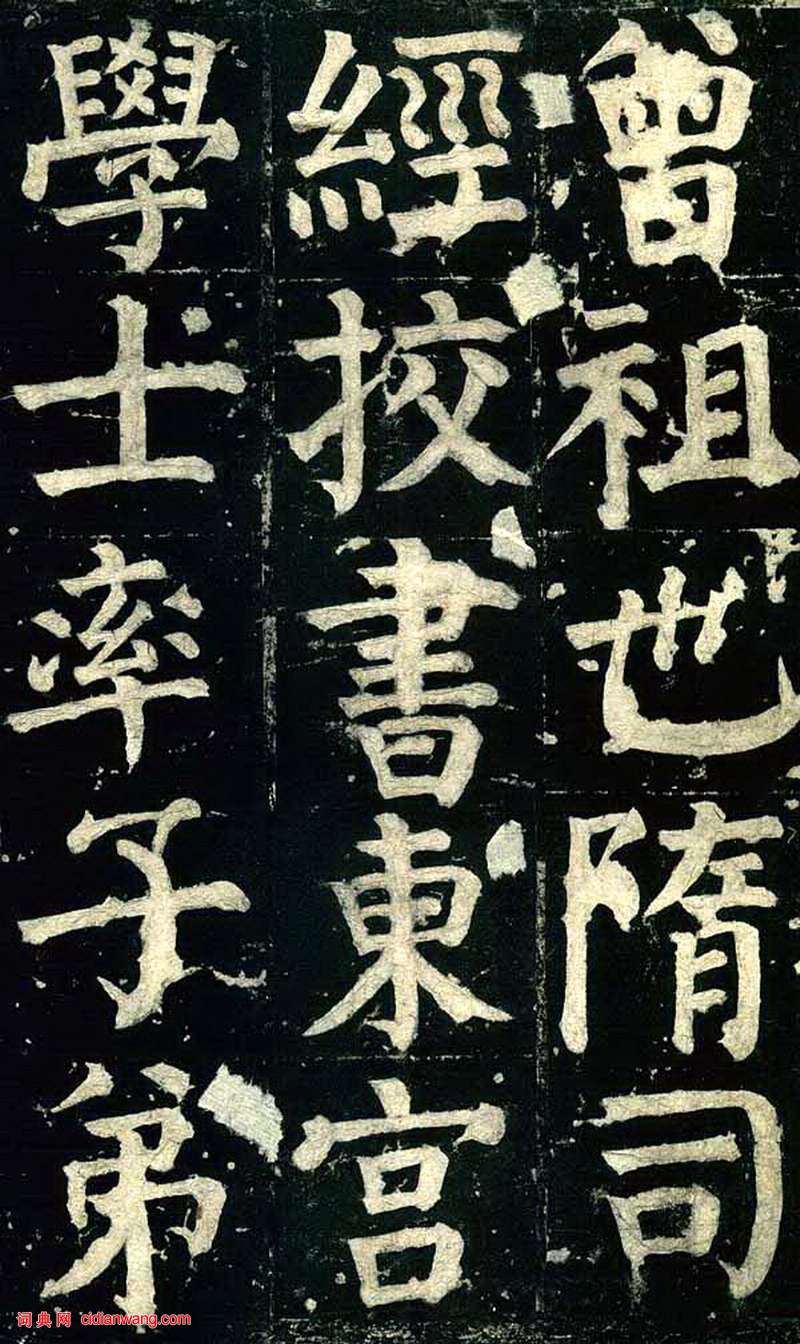 曾祖世隋司
經挍書東宫
學士率子弟
词典网 cidianwang.com